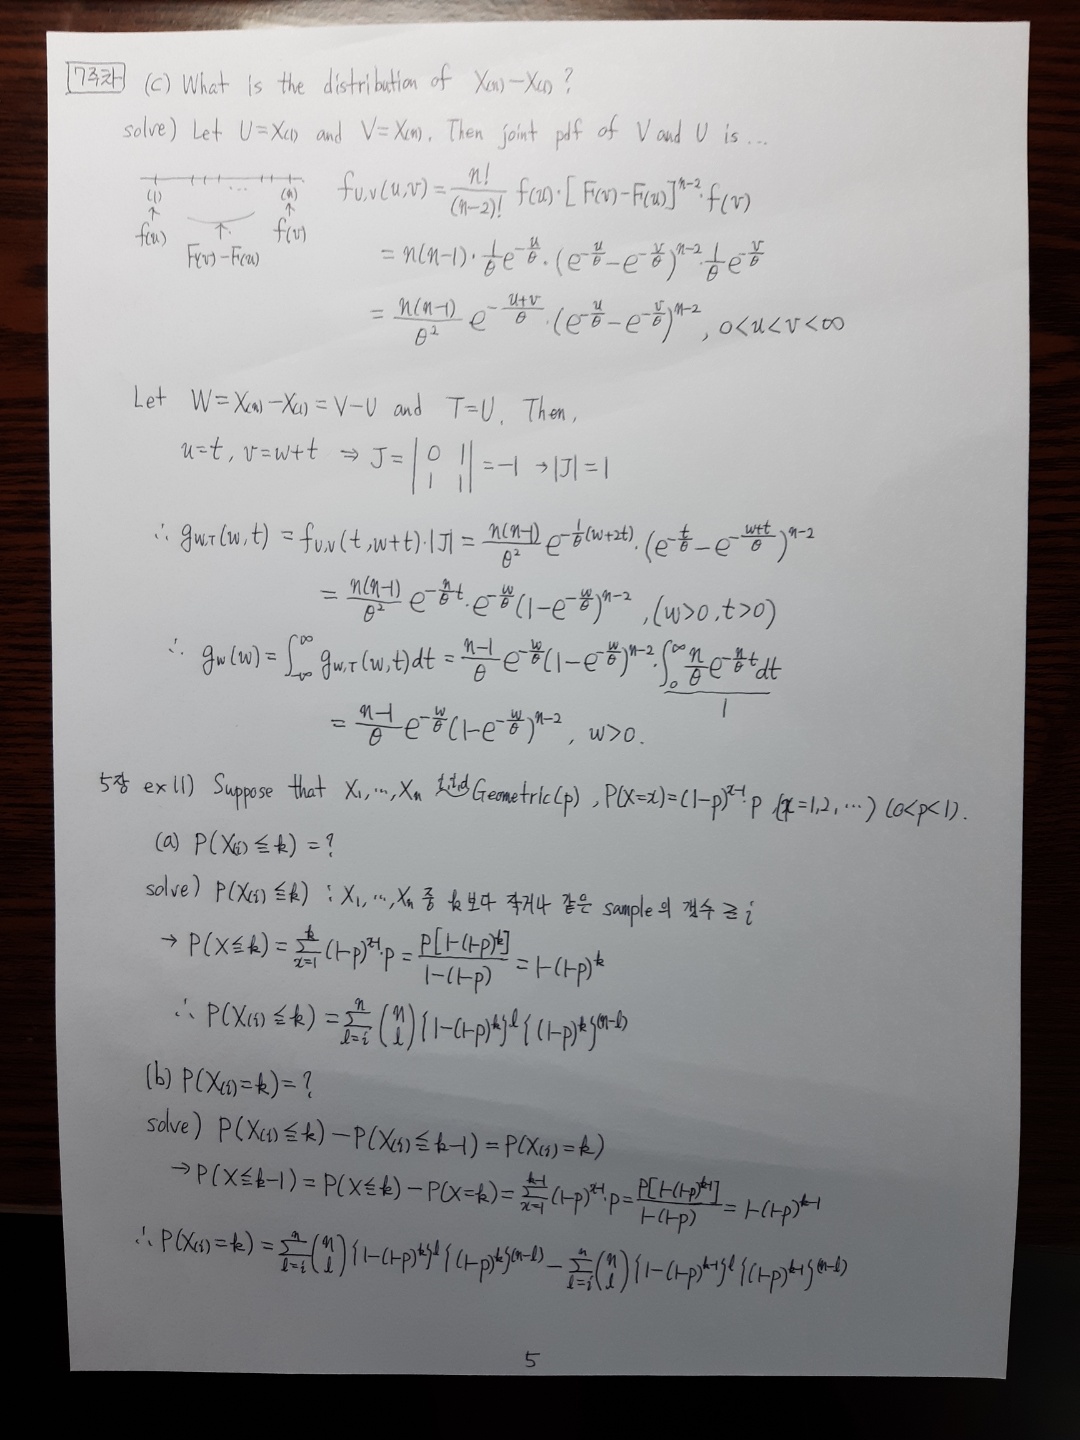 7주차 (c) What is the distribution of X₍ₙ₎−X₍₁₎?
solve) Let U=X₍₁₎ and V=X₍ₙ₎. Then joint pdf of V and U is ...
(1) ... (n)
f(u) F(v)−F(u) f(v)
f_{U,V}(u,v) = n!/(n−2)! f(u)·[F(v)−F(u)]^{n−2}·f(v)
= n(n−1)·1/θ e^{−u/θ}·(e^{−u/θ}−e^{−v/θ})^{n−2}·1/θ e^{−v/θ}
= n(n−1)/θ² e^{−(u+v)/θ}·(e^{−u/θ}−e^{−v/θ})^{n−2}, 0<u<v<∞
Let W=X₍ₙ₎−X₍₁₎=V−U and T=U. Then,
u=t, v=w+t ⇒ J=|0 1; 1 1|=−1 →|J|=1
∴ g_{W,T}(w,t) = f_{U,V}(t,w+t)·|J| = n(n−1)/θ² e^{−1/θ(w+2t)}·(e^{−t/θ}−e^{−(w+t)/θ})^{n−2}
= n(n−1)/θ² e^{−n/θ t}·e^{−w/θ}(1−e^{−w/θ})^{n−2}, (w>0, t>0)
∴ g_W(w) = ∫_{−∞}^{∞} g_{W,T}(w,t)dt = (n−1)/θ e^{−w/θ}(1−e^{−w/θ})^{n−2}·∫_0^∞ n/θ e^{−n/θ t}dt
1
= (n−1)/θ e^{−w/θ}(1−e^{−w/θ})^{n−2}, w>0.
5장 ex 11) Suppose that X₁,…,Xₙ i.i.d Geometric(p), P(X=x)=(1−p)^{x−1}·p (x=1,2,…) (0<p<1).
(a) P(X₍ᵢ₎≦k) = ?
solve) P(X₍ᵢ₎≦k) : X₁,…,Xₙ 중 k보다 작거나 같은 sample의 갯수 ≧ i
→ P(X≦k) = Σ_{x=1}^{k} (1−p)^{x−1}·p = p[1−(1−p)^k]/1−(1−p) = 1−(1−p)^k
∴ P(X₍ᵢ₎≦k) = Σ_{l=i}^{n} (n l) {1−(1−p)^k}^l {(1−p)^k}^{(n−l)}
(b) P(X₍ᵢ₎=k) = ?
solve) P(X₍ᵢ₎≦k) − P(X₍ᵢ₎≦k−1) = P(X₍ᵢ₎=k)
→ P(X≦k−1) = P(X≦k) − P(X=k) = Σ_{x=1}^{k−1} (1−p)^{x−1}·p = p[1−(1−p)^{k−1}]/1−(1−p) = 1−(1−p)^{k−1}
∴ P(X₍ᵢ₎=k) = Σ_{l=i}^{n} (n l) {1−(1−p)^k}^l {(1−p)^k}^{(n−l)} − Σ_{l=i}^{n} (n l) {1−(1−p)^{k−1}}^l {(1−p)^{k−1}}^{(n−l)}
5